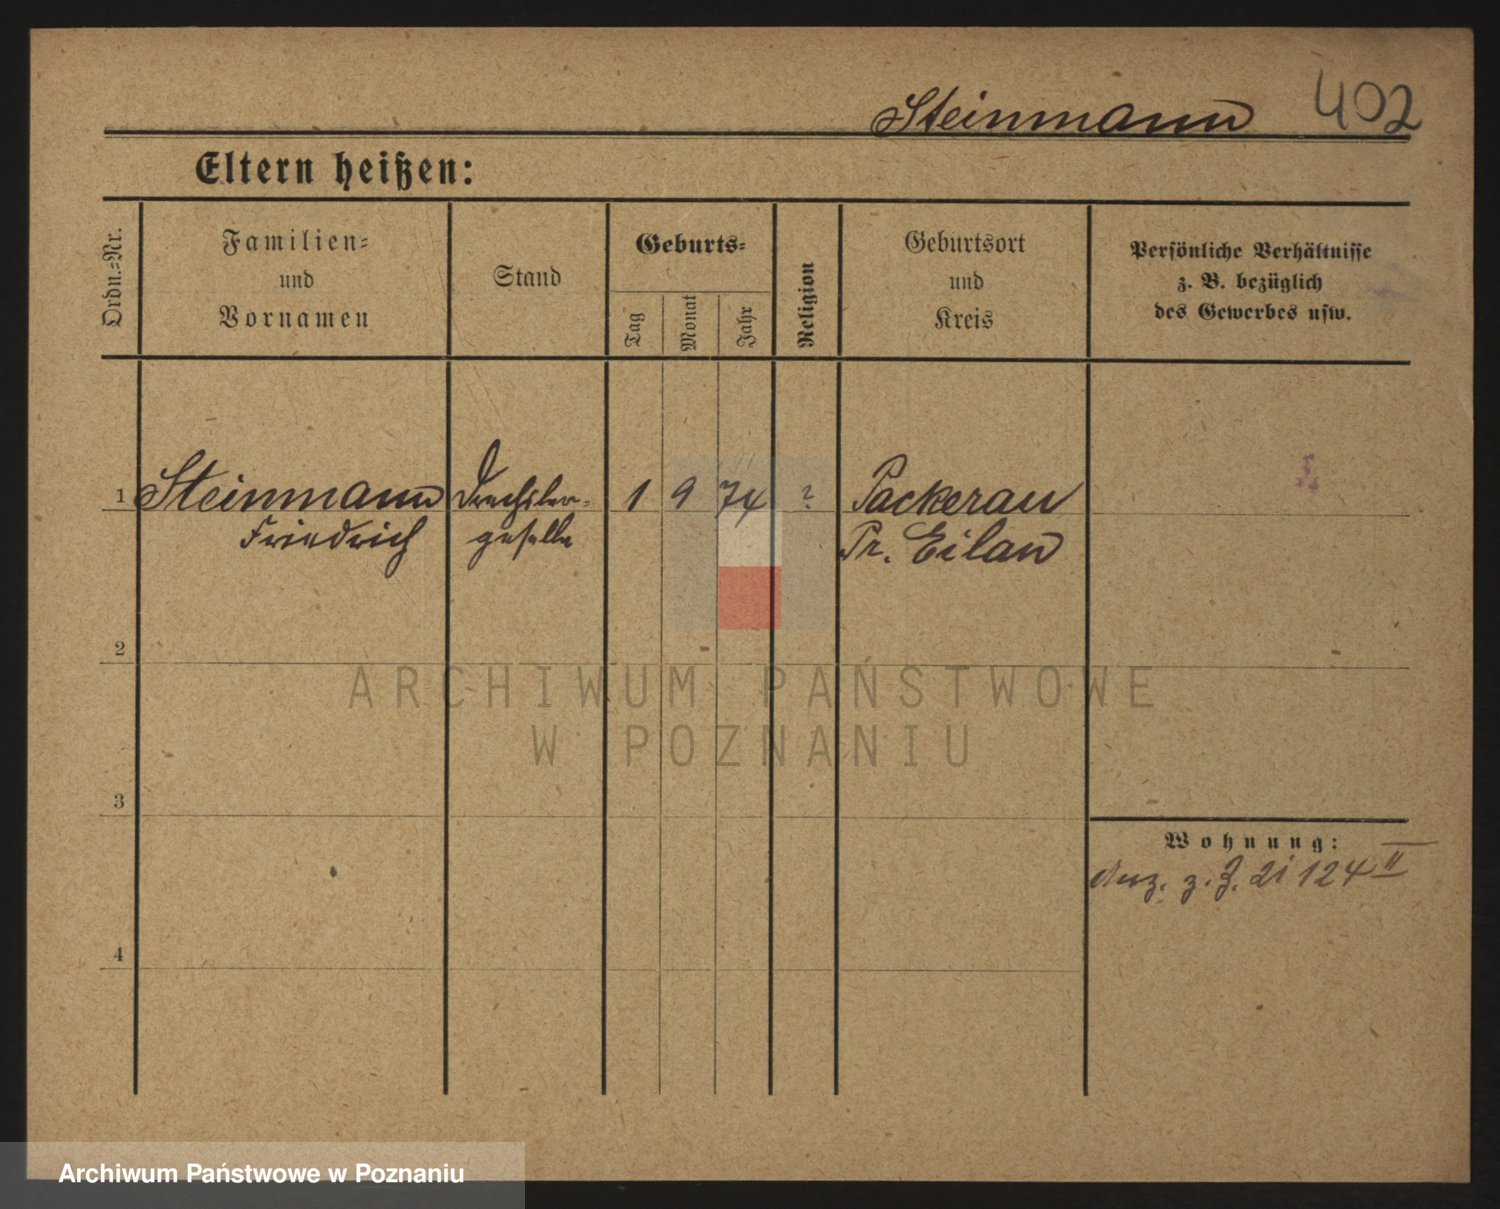 Steinmann 402
Eltern heißen:
Ordn.=Nr.
Familien=
und
Vornamen
Stand
Geburts=
Tag
Monat
Jahr
Religion
Geburtsort
und
Kreis
Persönliche Verhältnisse
z. B. bezüglich
des Gewerbes usw.
1 Steinmann Drechsler= 1 9 74 ? Packerau
Friedrich geselle Pr. Eilau
2
ARCHIWUM PAŃSTWOWE
W POZNANIU
3
Wohnung:
z. Z. 124 II
4
Archiwum Państwowe w Poznaniu